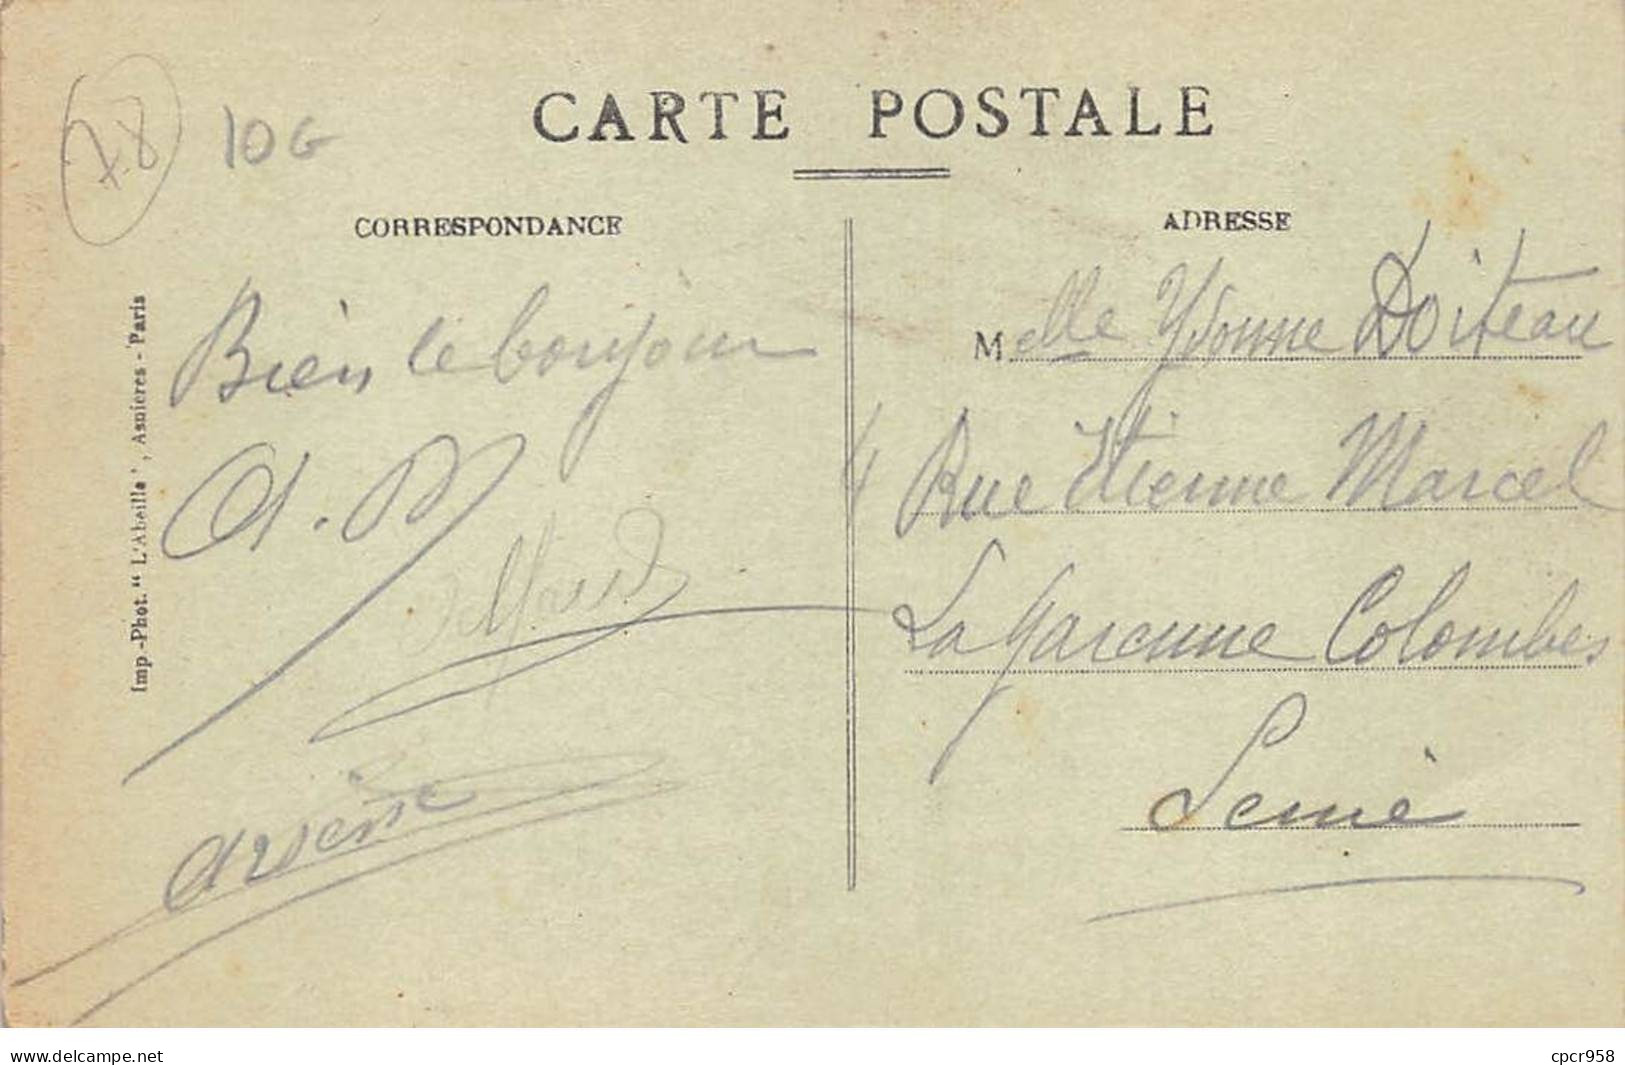 78
10G
CARTE POSTALE
CORRESPONDANCE
ADRESSE
Imp-Phot. "L'Abeille", Asnieres - Paris
Bien le bonjour
A.
Arsène
Melle Yvonne Doiteau
4 Rue Etienne Marcel
La Garenne Colombes
Seine
www.delcampe.net
cpcr958